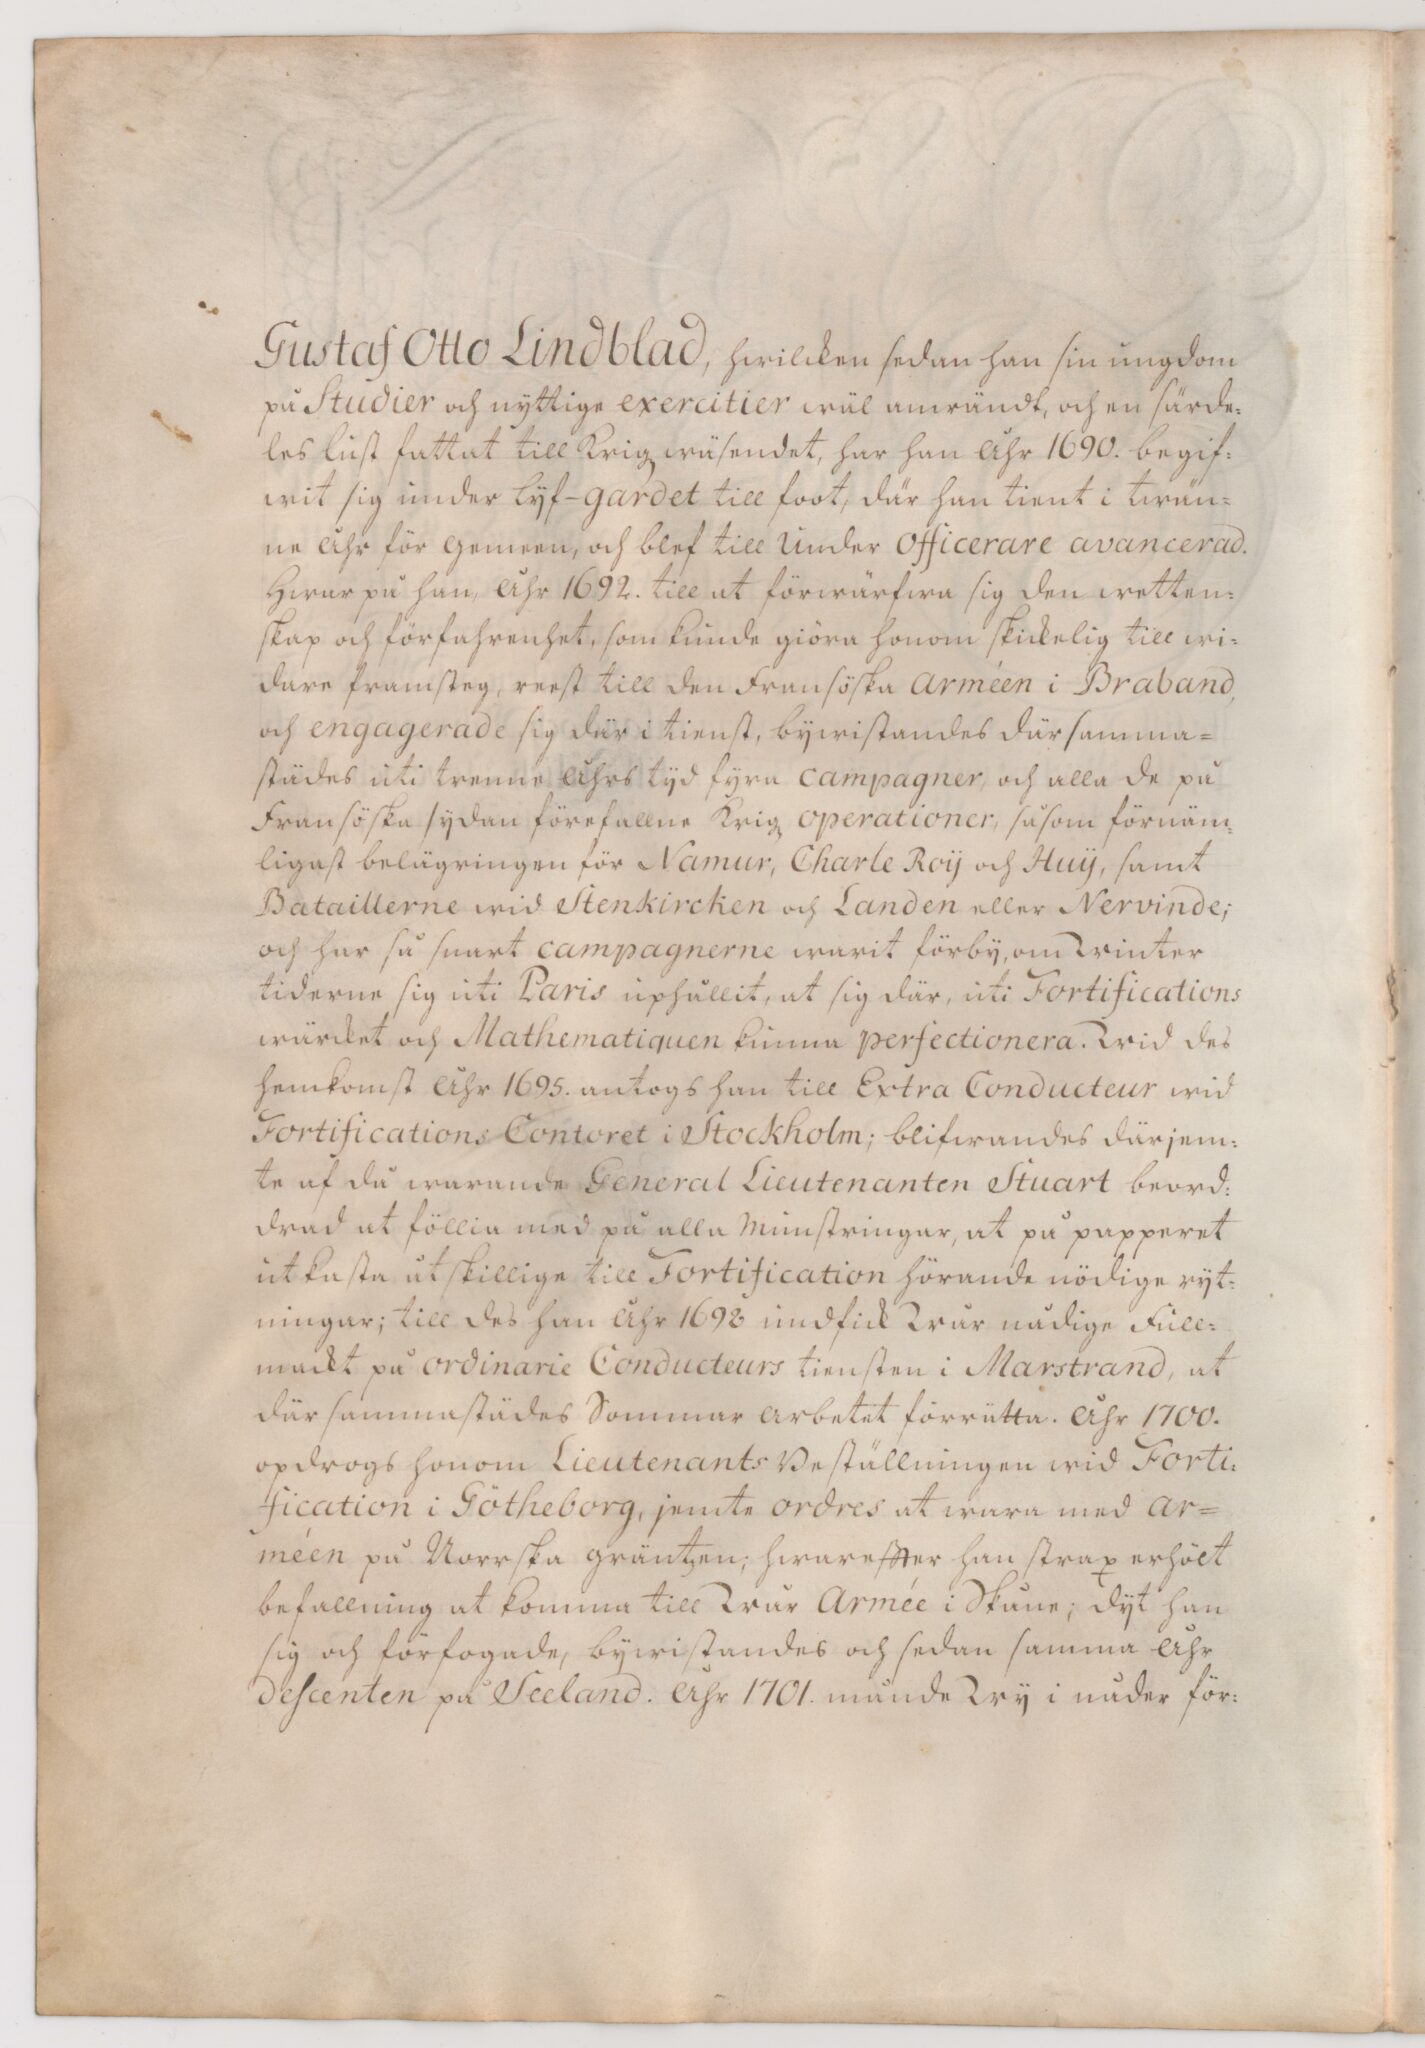 Gustaf Otto Lindblad, hwilcken sedan han sin ungdom
på Studier och nyttige exercitier wäl anwändt, och en särde=
les lust fattat till Krigz wäsendet, har han Åhr 1690. begif=
wit sig under Lÿf-gardet till foot, där han tient i twän=
ne Åhr för gemeen, och blef till Under Officerare avancerad.
Hwar på han, Åhr 1692. till at förwärfwa sig den wetten=
skap och förfahrenhet, som kunde giöra honom skickelig till wi=
dare framsteg, reest till den Fransöska Arméen i Braband,
och engagerade sig där i tienst, bÿwistandes där samma=
städes uti trenne Åhrs tÿd fÿra campagner, och alla de på
Fransöska sÿdan förefallne Krigz operationer, såsom förnäm=
ligast belägringen för Namur, Charle Roÿ och Huÿ, samt
Bataillerne wid Stenkircken och Landen eller Nervinde;
och har så snart campagnerne warit förbÿ, om Winter
tiderne sig uti Paris uphållit, at sig där, uti Fortifications
wärcket och Mathematiquen kunna perfectionera. Wid des
hemkomst Åhr 1695. antogs han till Extra Conducteur wid
Fortifications Contoret i Stockholm; blifwandes därjem=
te af då warande General Lieutenanten Stuart beord=
drad at föllia med på alla Munstringar, at på papperet
utkasta åtskillige till Fortification hörande nödige rÿt=
ningar; till des han Åhr 1698 undfick Wår nådige Full=
mackt på ordinarie Conducteurs tiensten i Marstrand, at
där sammastädes Sommar arbetet förrätta. Åhr 1700.
opdrogs honom Lieutenants Beställningen wid Forti=
fication i Götheborg, jemte ordres at wara med Ar=
méen på Norrska gräntzen; hwarefter han strax erhölt
befallning at komma till Wår Armée i Skåne; dÿt han
sig och förfogade, bÿwistandes och sedan samma Åhr
descenten på Seeland. Åhr 1701. månde Wÿ i nåder för=